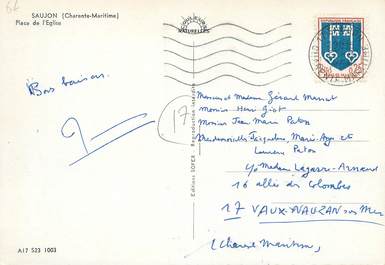 SAUJON (Charente-Maritime)
Place de l'Eglise
COULEURS
NATURELLES
REPUBLIQUE FRANÇAISE
0,25
Bons baisers
17
Editions SOFER - Reproduction interdite
Monsieur et Madame Gérard
Monsieur Henri
Monsieur Jean Marie Paton
Mesdemoiselles Jacqueline, Marie-Ange et
Paton
c/o Madame Lagarde-Arnaud
16 allée des Colombes
17 VAUX-NAUZAN sur Mer
(Charente Maritime)
A17 523 1003